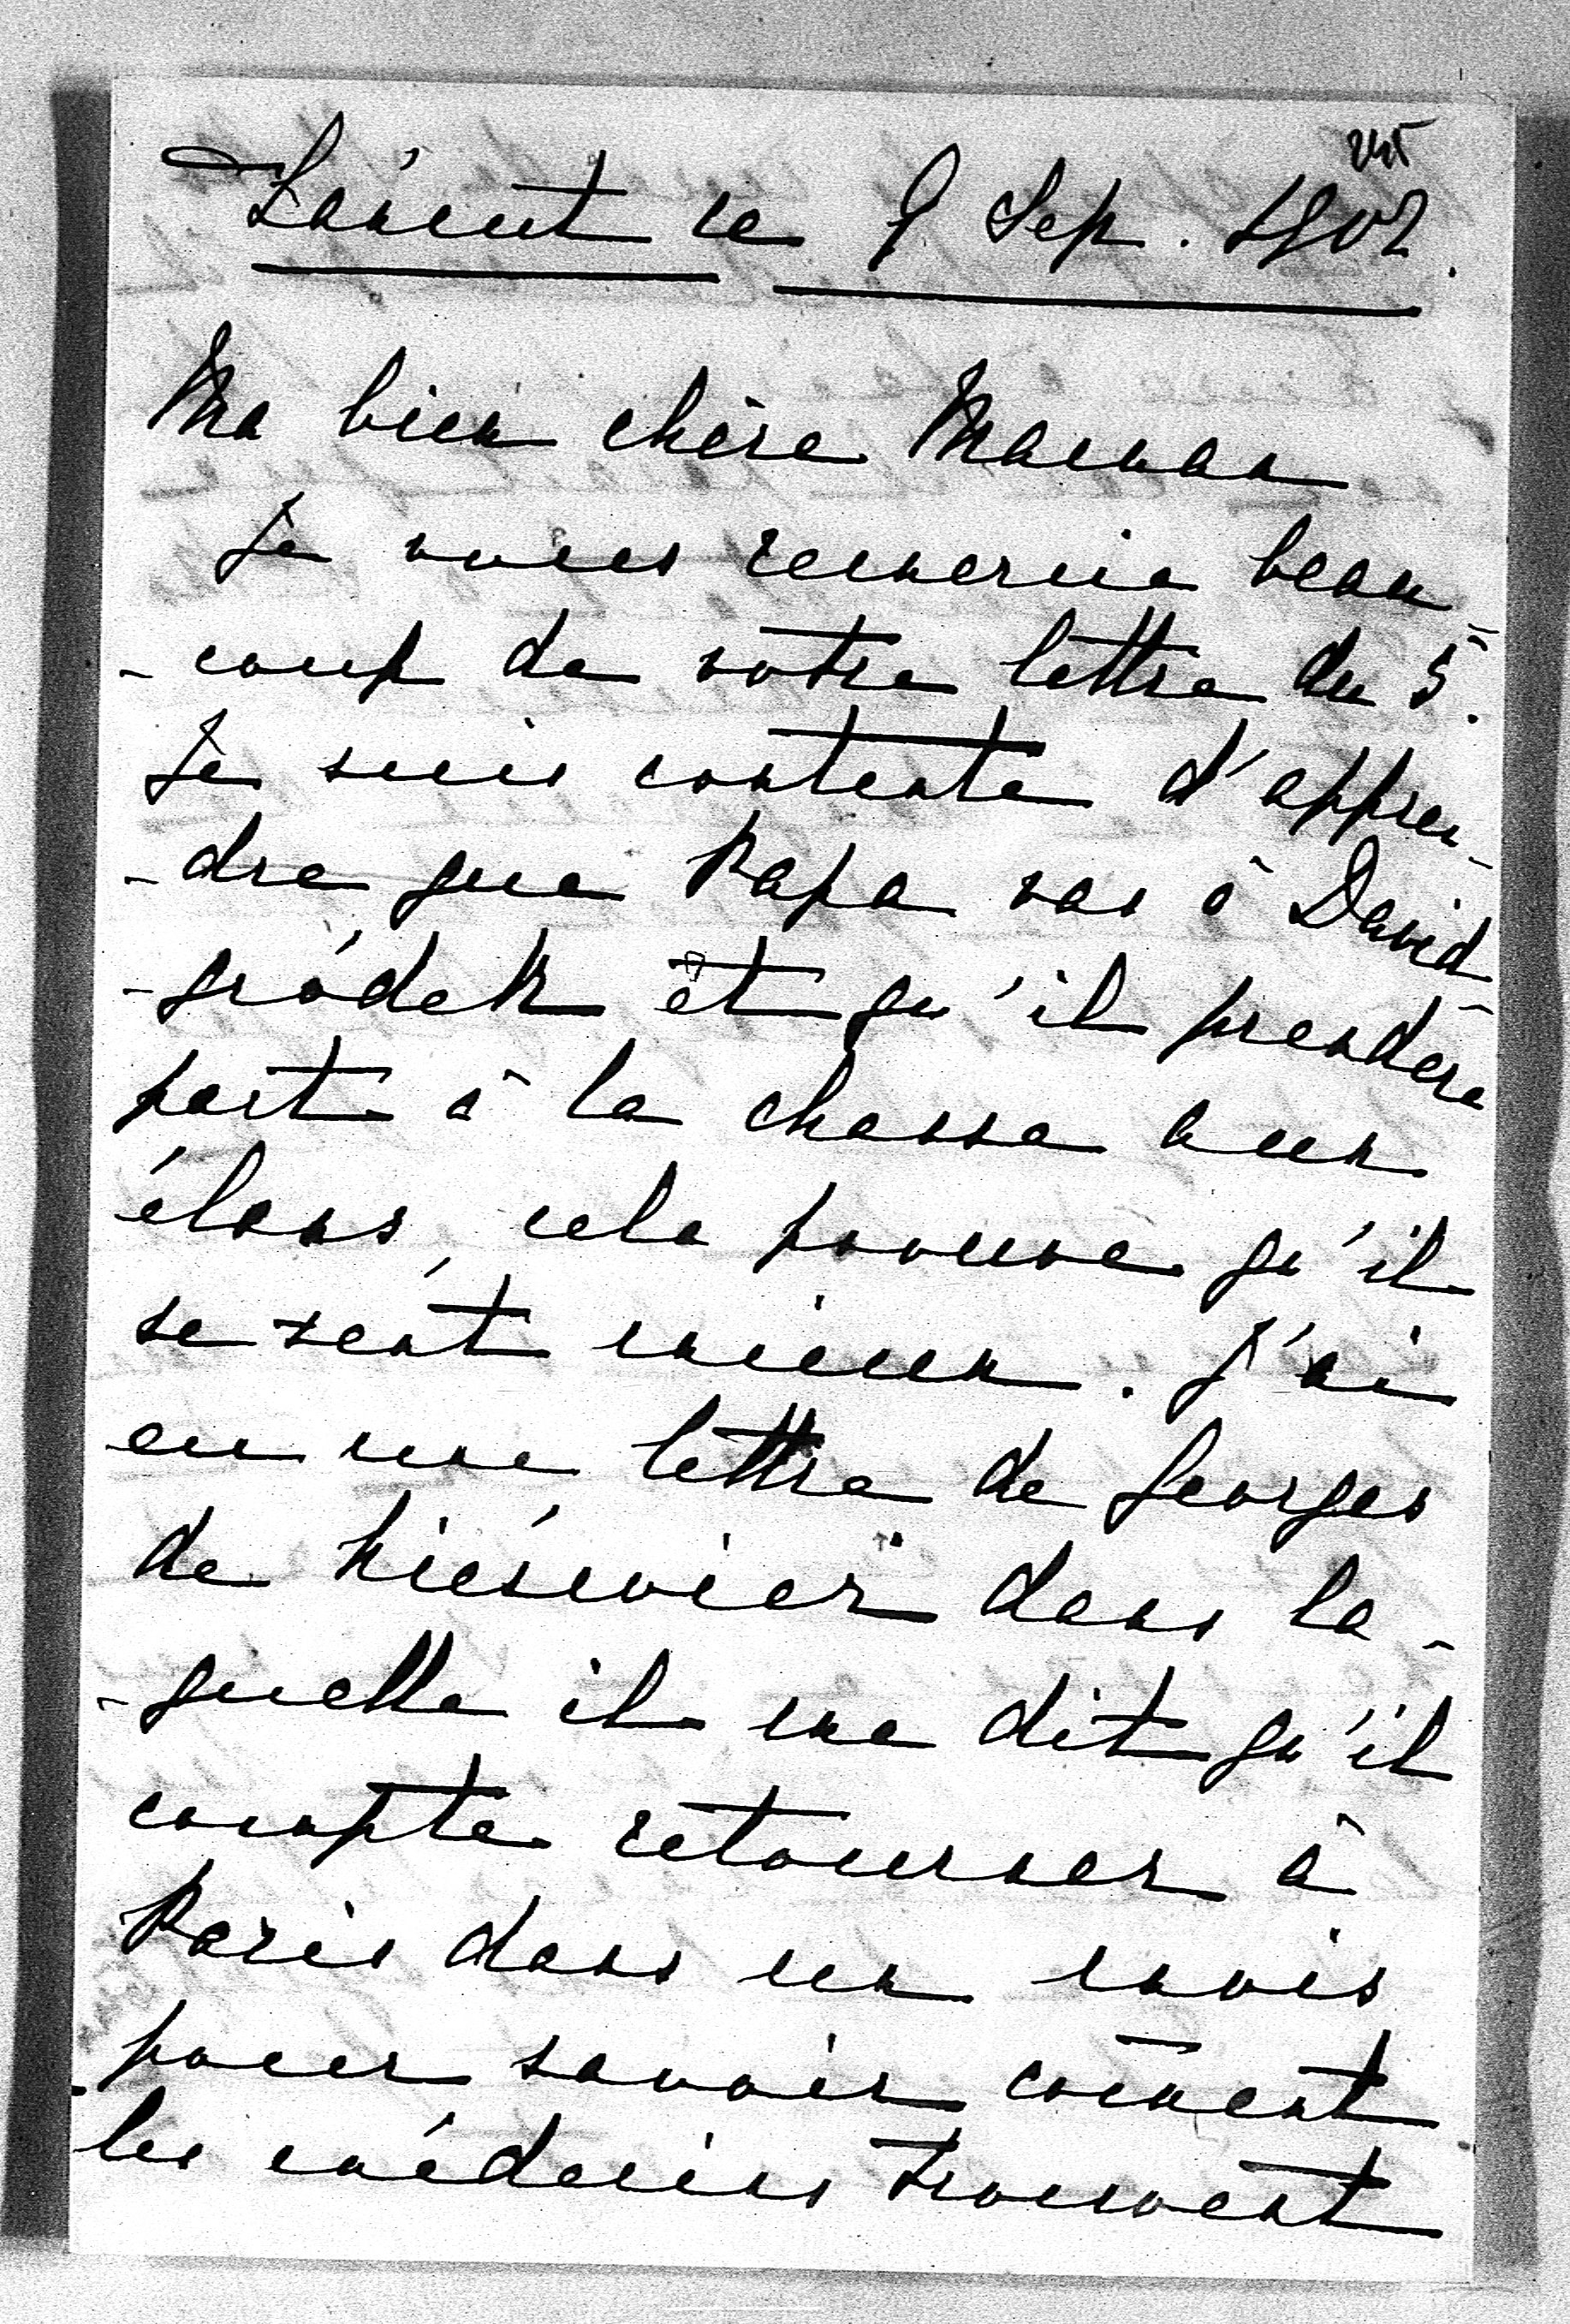 245
Łańcut ce 9 Sep. 1902.
Ma bien chère Maman
Je vous remercie beau-
-coup de votre lettre du 5.
Je suis contente d'appren-
-dre que Papa vas à David-
-gródek et qu'il prendera
part à la chasse aux
élans, cela prouve qu'il
se sent mieux. J'ai
eu une lettre de Georges
de Nieśwież dans la-
-quelle il me dit qu'il
compte retourner à
Paris dans un mois
pour savoir com̄ent
les médecins trouvent